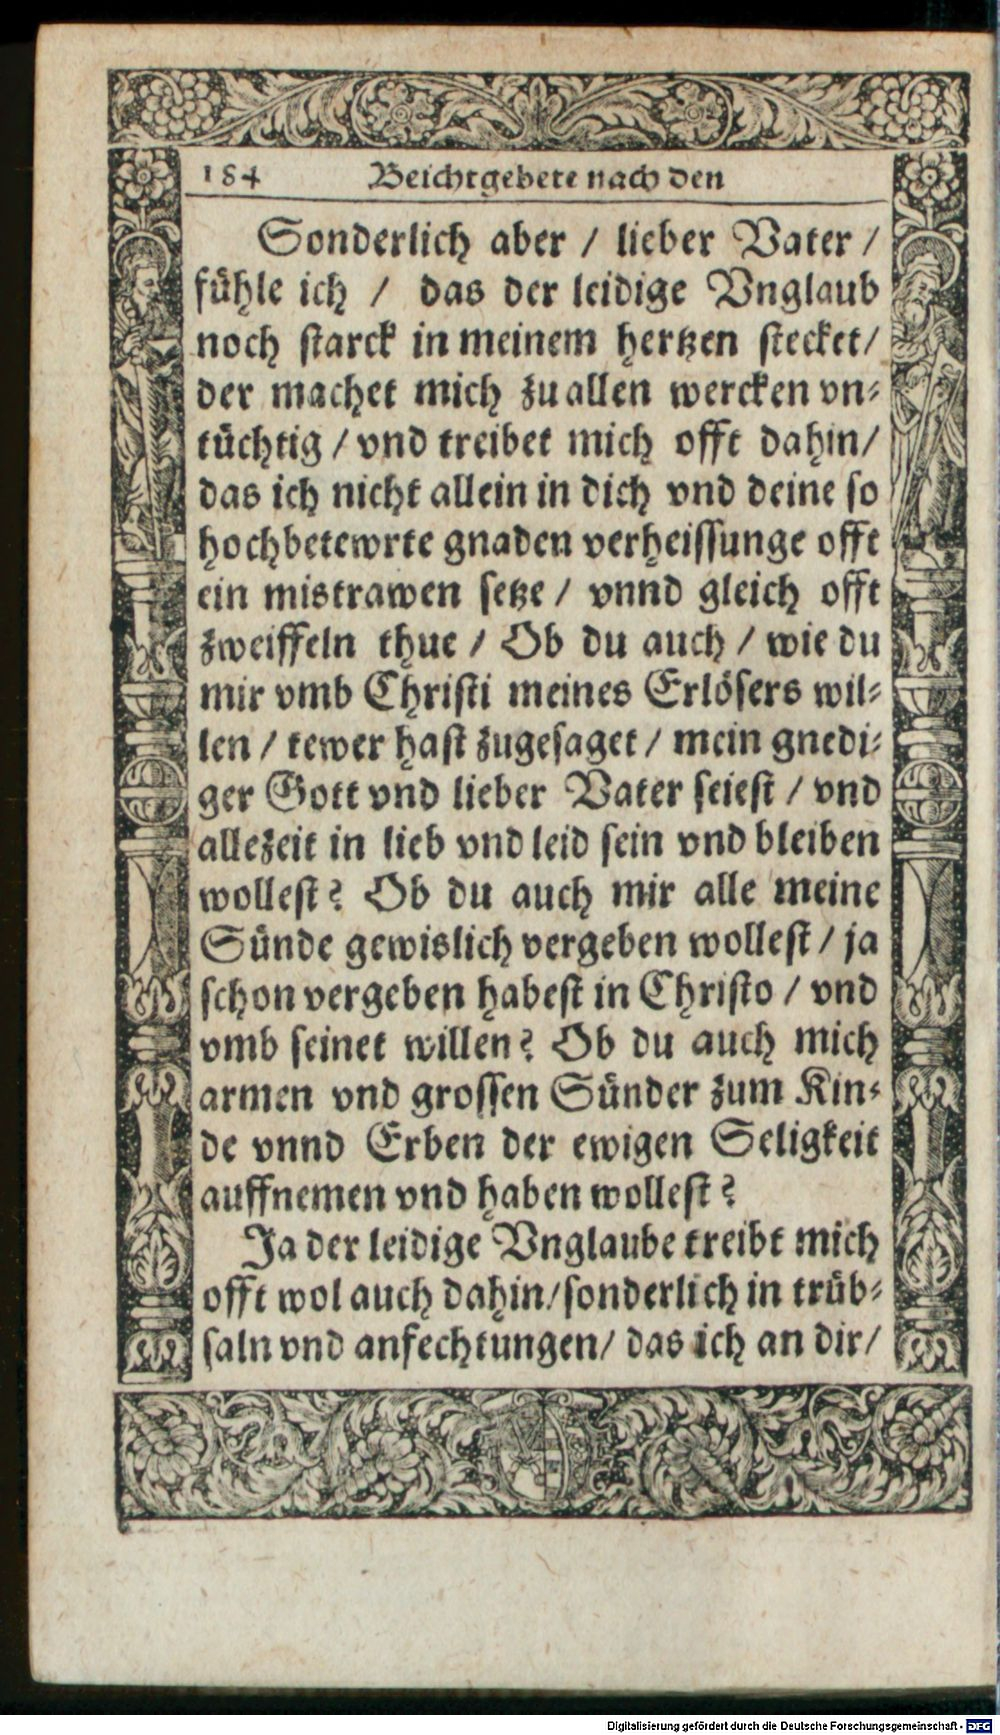 184 Beichtgebete nach den
Sonderlich aber / lieber Vater /
fühle ich / das der leidige Vnglaub
noch starck in meinem hertzen stecket/
der machet mich zu allen wercken vn-
tüchtig / vnd treibet mich offt dahin/
das ich nicht allein in dich vnd deine so
hochbetewrte gnaden verheissunge offt
ein mistrawen setze / vnnd gleich offt
zweiffeln thue / Ob du auch / wie du
mir vmb Christi meines Erlösers wil-
len / tewer hast zugesaget / mein gnedi-
ger Gott vnd lieber Vater seiest / vnd
allezeit in lieb vnd leid sein vnd bleiben
wollest? Ob du auch mir alle meine
Sünde gewislich vergeben wollest / ja
schon vergeben habest in Christo / vnd
vmb seinet willen? Ob du auch mich
armen vnd grossen Sünder zum Kin-
de vnnd Erben der ewigen Seligkeit
auffnemen vnd haben wollest?
Ja der leidige Vnglaube treibt mich
offt wol auch dahin/sonderlich in trüb-
saln vnd anfechtungen/ das ich an dir/
Digitalisierung gefördert durch die Deutsche Forschungsgemeinschaft - DFG